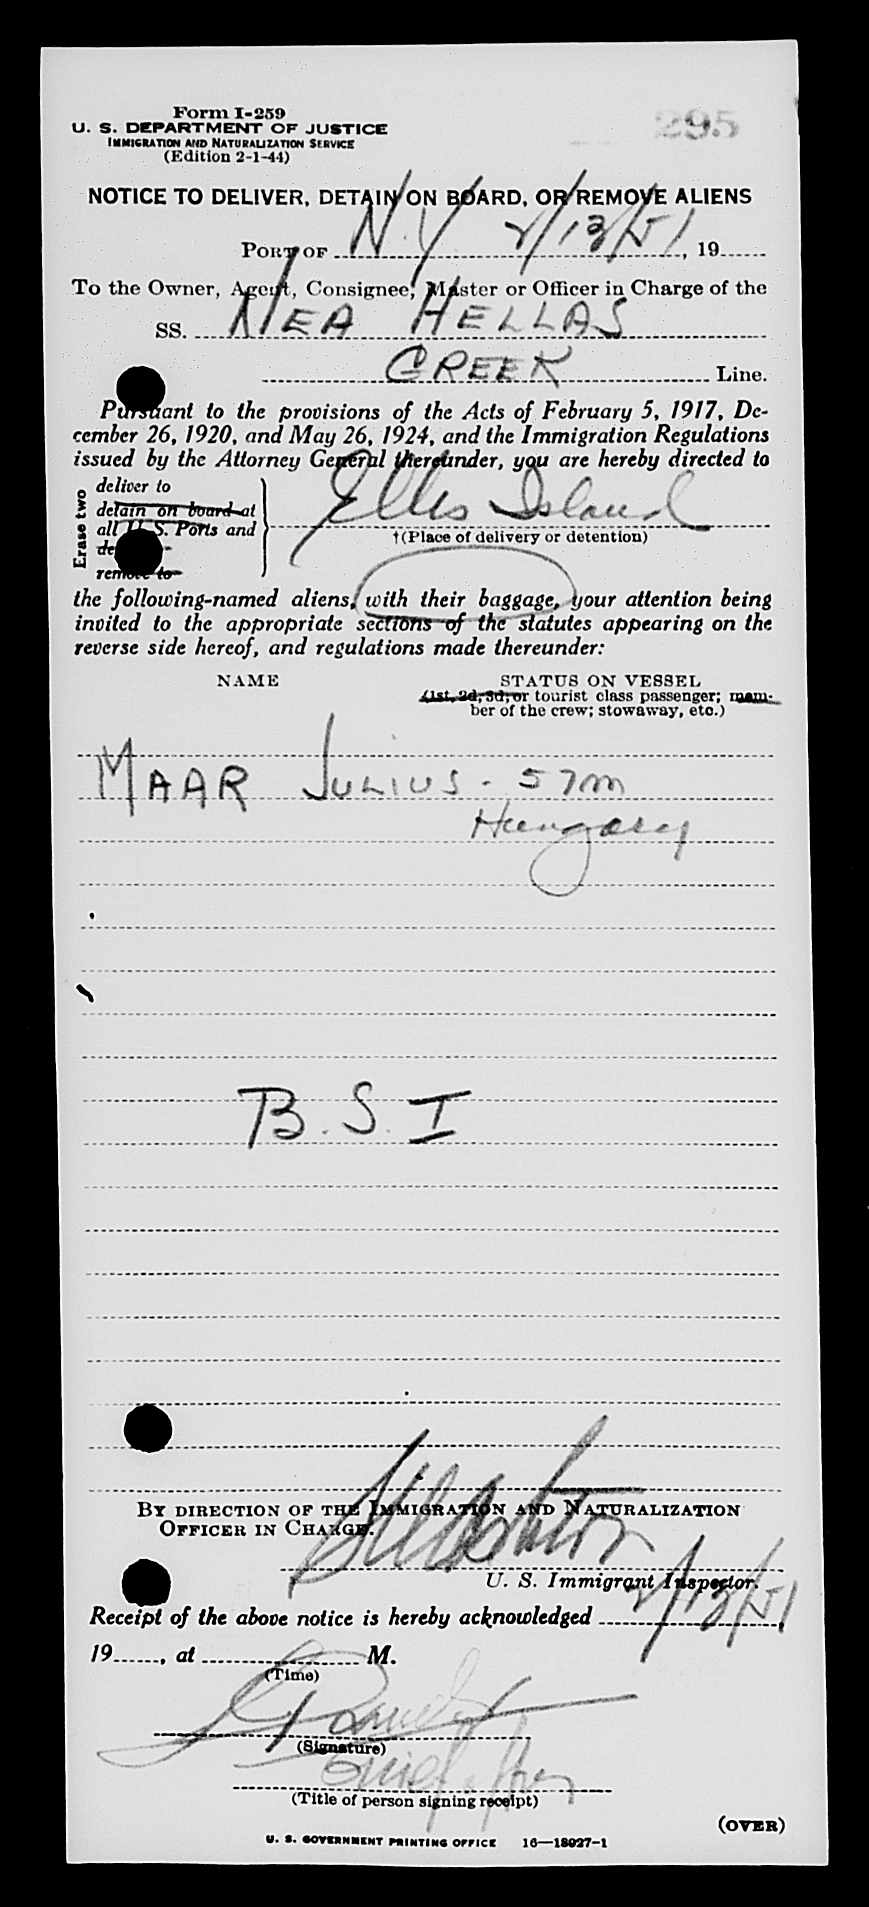 Form I-259
U. S. DEPARTMENT OF JUSTICE
IMMIGRATION AND NATURALIZATION SERVICE
(Edition 2-1-44)
295
NOTICE TO DELIVER, DETAIN ON BOARD, OR REMOVE ALIENS
PORT OF N.Y 2/13/51, 19
To the Owner, Agent, Consignee, Master or Officer in Charge of the
SS. NEA HELLAS
GREEK Line.
Pursuant to the provisions of the Acts of February 5, 1917, De-
cember 26, 1920, and May 26, 1924, and the Immigration Regulations
issued by the Attorney General thereunder, you are hereby directed to
Erase two
deliver to
detain on board at
all U. S. Ports and
de
remove to
Ellis Island
†(Place of delivery or detention)
the following-named aliens, with their baggage, your attention being
invited to the appropriate sections of the statutes appearing on the
reverse side hereof, and regulations made thereunder:
NAME STATUS ON VESSEL
(1st, 2d, 3d, or tourist class passenger; mem-
ber of the crew; stowaway, etc.)
MAAR JULIUS - 57m
Hungary
B.S.I
BY DIRECTION OF THE IMMIGRATION AND NATURALIZATION
OFFICER IN CHARGE.
U. S. Immigrant Inspector.
Receipt of the above notice is hereby acknowledged 2/13/51
19, at M.
(Time)
(Signature)
(Title of person signing receipt)
(OVER)
U. S. GOVERNMENT PRINTING OFFICE 16—18027-1